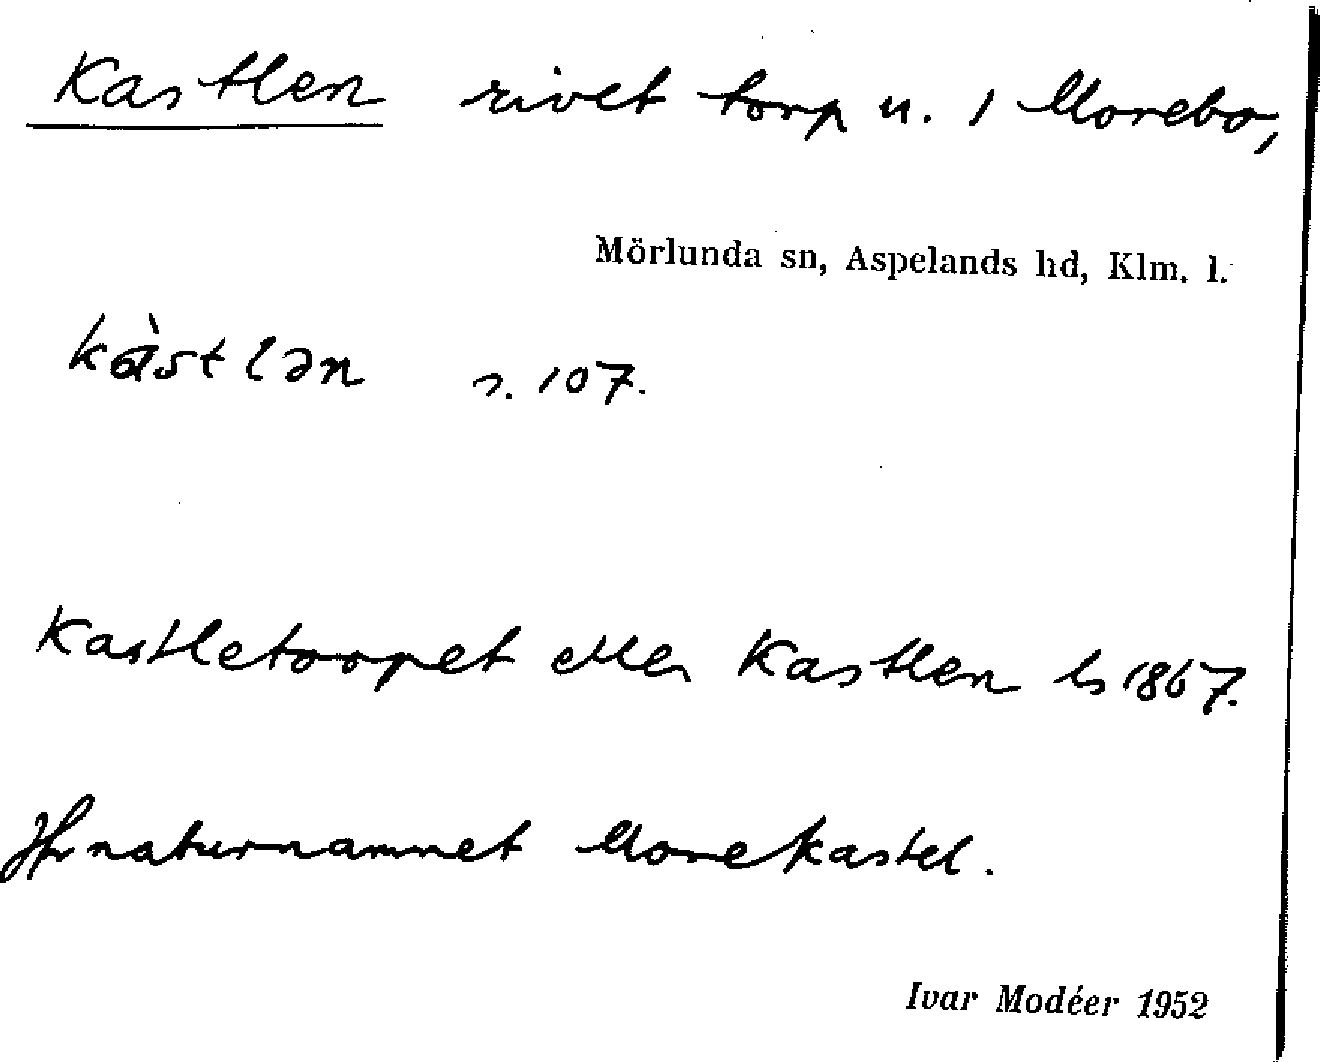 Kastlen rivet torp u. 1 Morebo,
Mörlunda sn, Aspelands hd, Klm. l.
kàstlən s. 107.
Kastletorpet eller Kastlen ls 1867.
Jfr naturnamnet Morekastel.
Ivar Modéer 1952